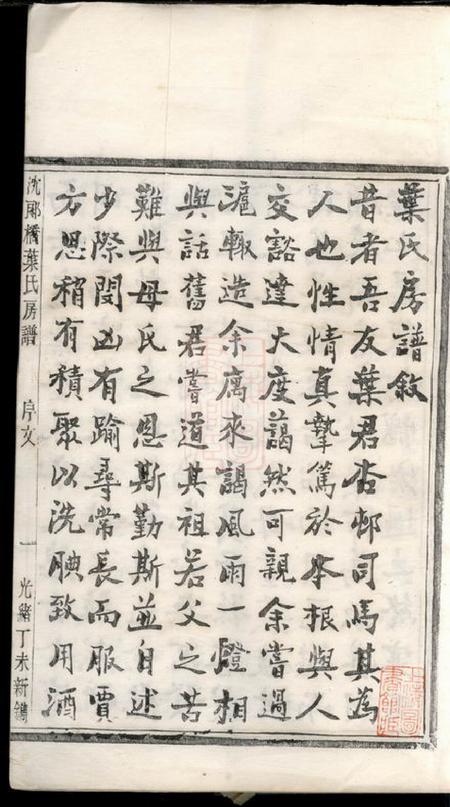 葉氏房譜敘
昔者吾友葉君杏邨司馬其為
人也性情真摯篤於本根與人
交豁達大度藹然可親余嘗過
滬輙造余寓來謁風雨一燈相
與話舊君嘗道其祖若父之苦
難與母氏之恩斯勤斯並自述
少際閔凶有踰尋常長而服賈
方思稍有積聚以洗腆致用酒
沈郎橋葉氏房譜 序文 一 光緒丁未新鐫
上海圖書館藏